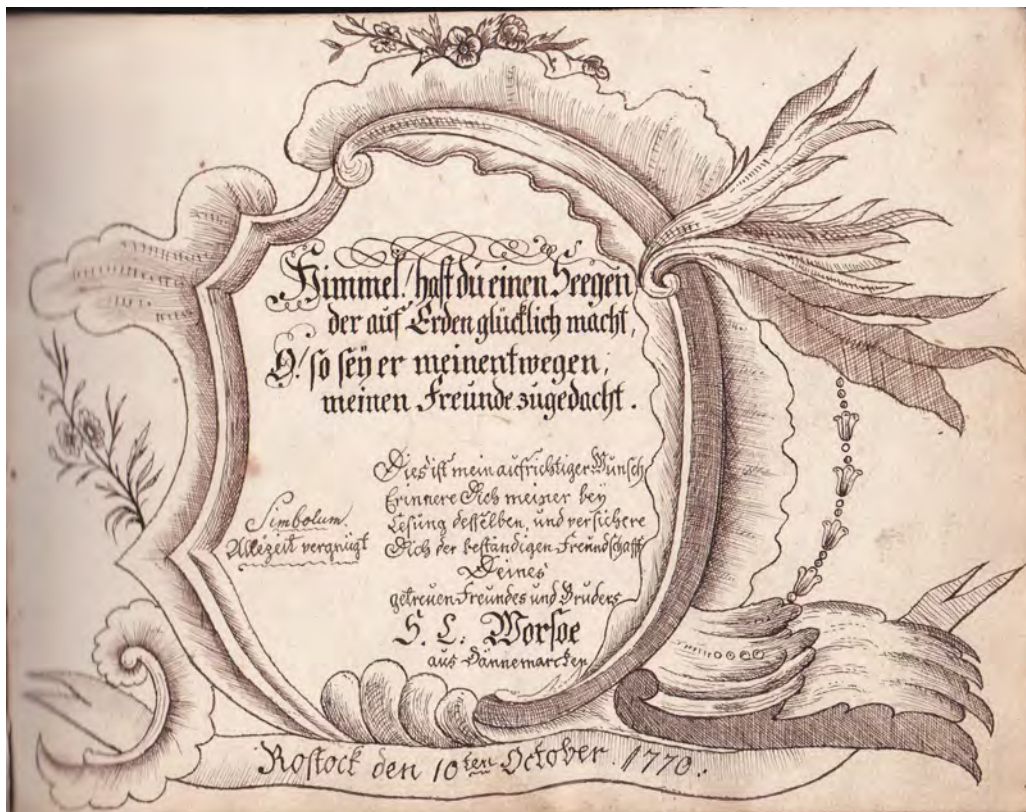 Himmel! hast du einen Seegen
der auf Erden glücklich macht,
O! so seÿ er meinentwegen,
meinen Freunde zugedacht.
Dies ist mein aufrichtiger Wunsch
Erinnere Dich meiner bey
Lesung desselben, und versichere
Dich der beständigen Freundschafft
Deines
getreuen Freundes und Bruders
S. C. Worsoe
aus Dännemarcken
Simbolum.
Allezeit vergnügt
Rostock den 10ten October. 1770.